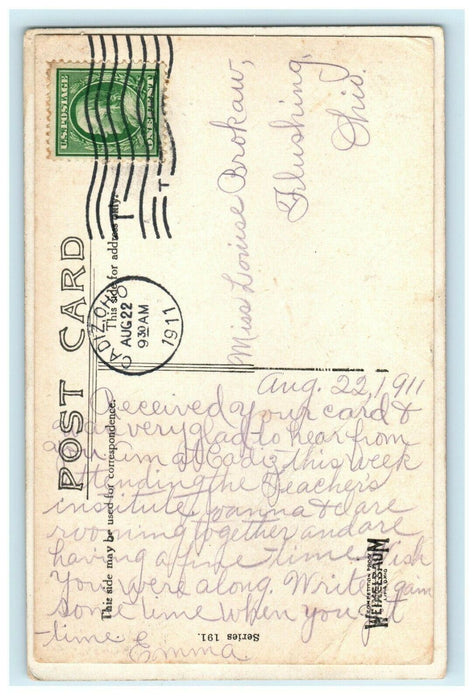 U.S. POSTAGE
ONE CENT
POST CARD
This side for address only.
CADIZ, OHIO
AUG 22
9 30 AM
1911
Miss Louise Brokaw,
Flushing,
Ohio.
This side may be used for correspondence.
Aug. 22, 1911
Received your card &
was very glad to hear from
you. I'm at Cadiz this week
attending the Teacher's
institute. Joanna & I are
rooming together and are
having a fine time. Wish
you were along. Write again
some time when you get
time
Emma
Series 191.
WEIXELBAUM